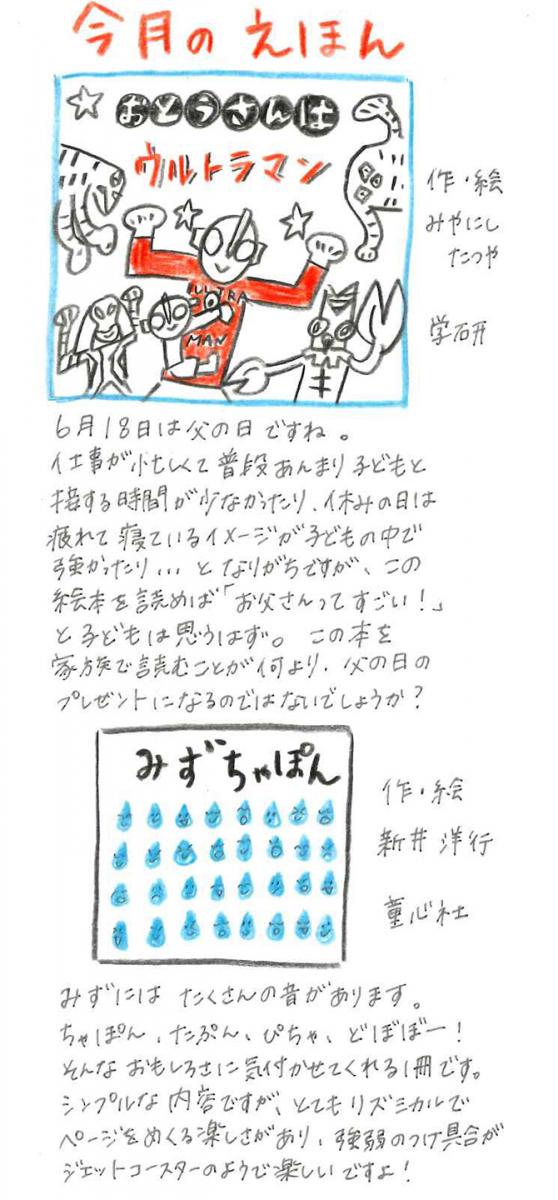 今月のえほん
おとうさんは
ウルトラマン
ULTRA
MAN
作・絵
みやにし
たつや
学研
6月18日は父の日ですね。
仕事が忙しくて普段あんまり子どもと
接する時間が少なかったり、休みの日は
疲れて寝ているイメージが子どもの中で
強かったり...となりがちですが、この
絵本を読めば「お父さんってすごい!」
と子どもは思うはず。この本を
家族で読むことが何より、父の日の
プレゼントになるのではないでしょうか?
みずちゃぽん
作・絵
新井洋行
童心社
みずには たくさんの音があります。
ちゃぽん、たぷん、ぴちゃ、どぼぼー!
そんなおもしろさに気付かせてくれる1冊です。
シンプルな内容ですが、とてもリズミカルで
ページをめくる楽しさがあり、強弱のつけ具合が
ジェットコースターのようで楽しいですよ!